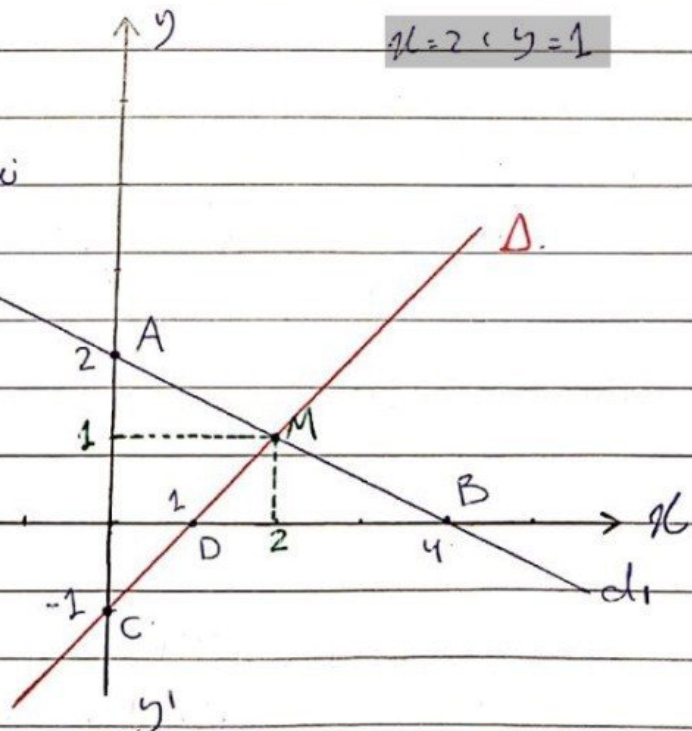 y
x=2, y=1
Δ.
2 A
1 M
1 B
D 2 4 x
-1 d1
C
y'